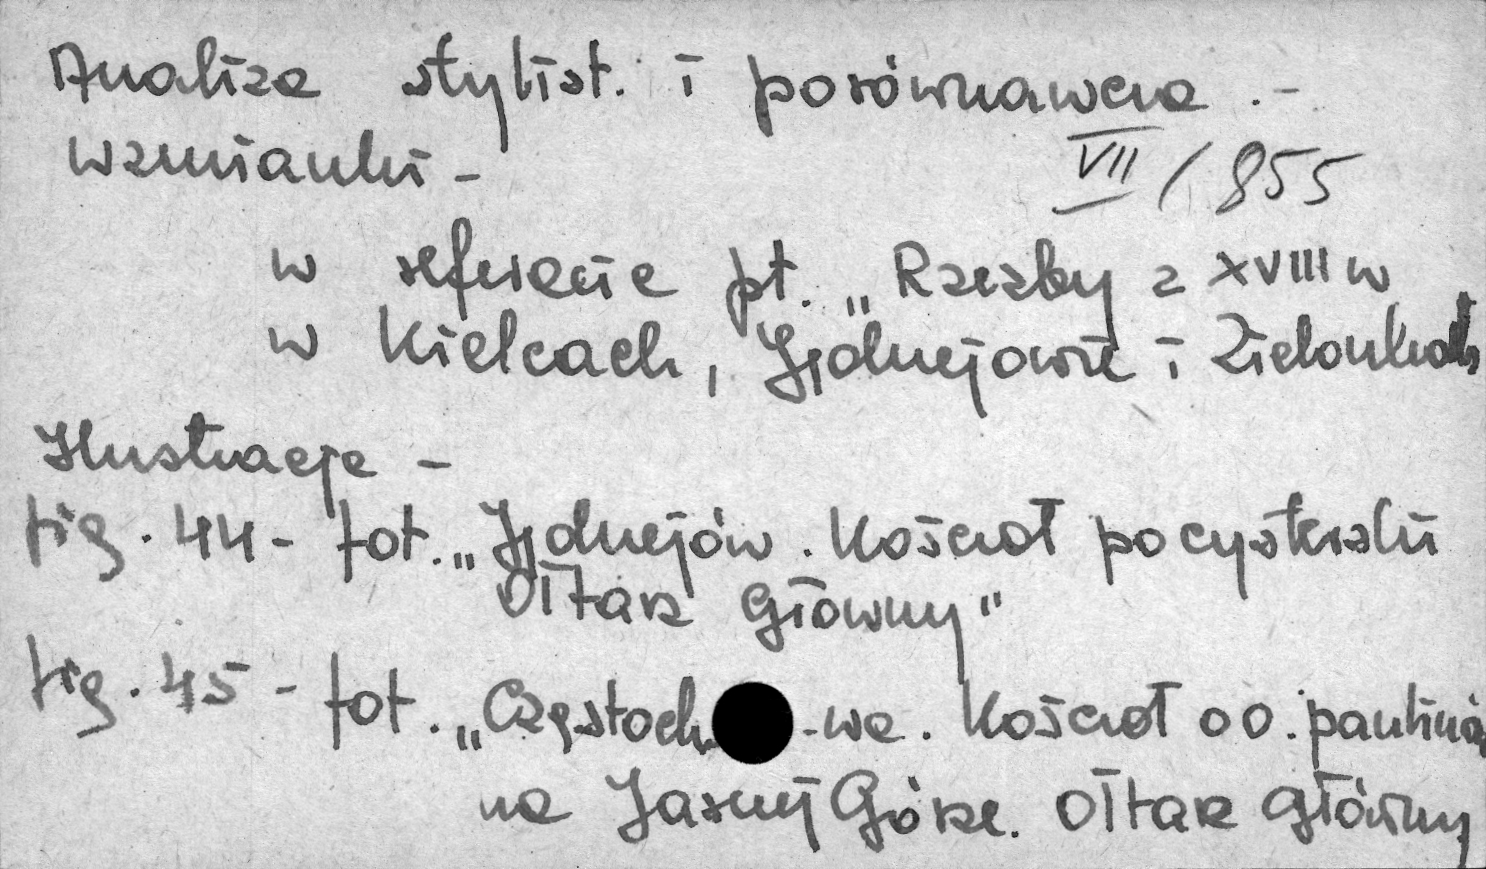 Analiza stylist. i porównawcza.-
wzmianki -
VII / 855
w referacie pt. „Rzeźby z XVIII w
w Kielcach, Jędrzejowie i Zielonkach
Ilustracje -
fig. 44 - fot. „Jędrzejów. Kościół pocysterski
Ołtarz Główny"
fig. 45 - fot. „Częstoch -wa. Kościół oo. paulinów
na Jasnej Górze. Ołtarz główny